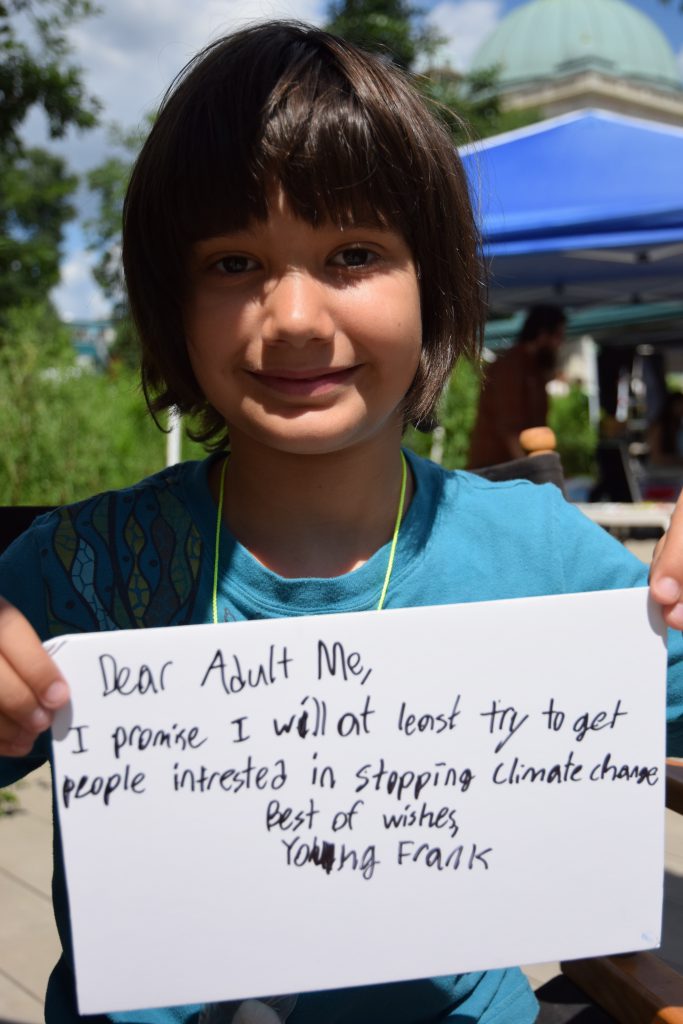 Dear Adult Me,
I promise I will at least try to get
people intrested in stopping climate change
Best of wishes,
Young Frank